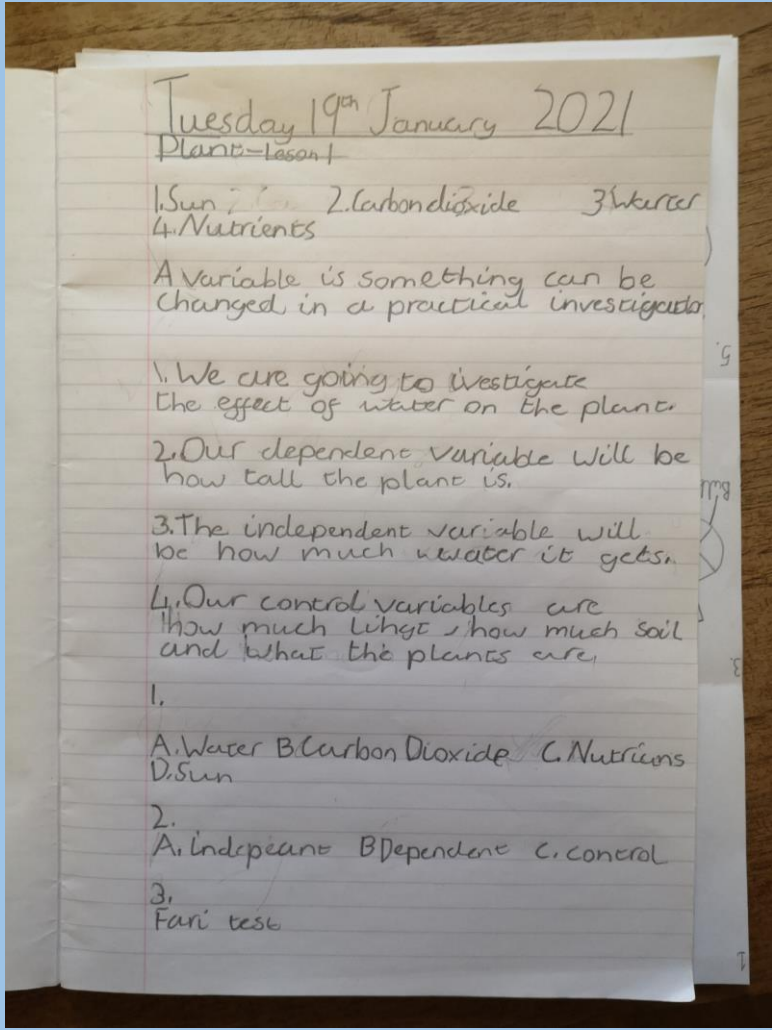 Tuesday 19th January 2021
Plant-Leson 1
1.Sun 2.Carbondioxide 3.Warter
4.Nutrients
A variable is something can be
changed in a practical
1.We are going to ivestigate
the effect of water on the plant.
2.Our dependent variable will be
how tall the plant is.
3.The independent variable will
be how much water it gets.
4.Our control variables are
how much lihgt, how much soil
and what the plants are.
1.
A.Water B.Carbon Dioxide C.Nutricuns
D.Sun
2.
A.Indepeant B Dependent C.control
3.
Fari test
5.
3.
1